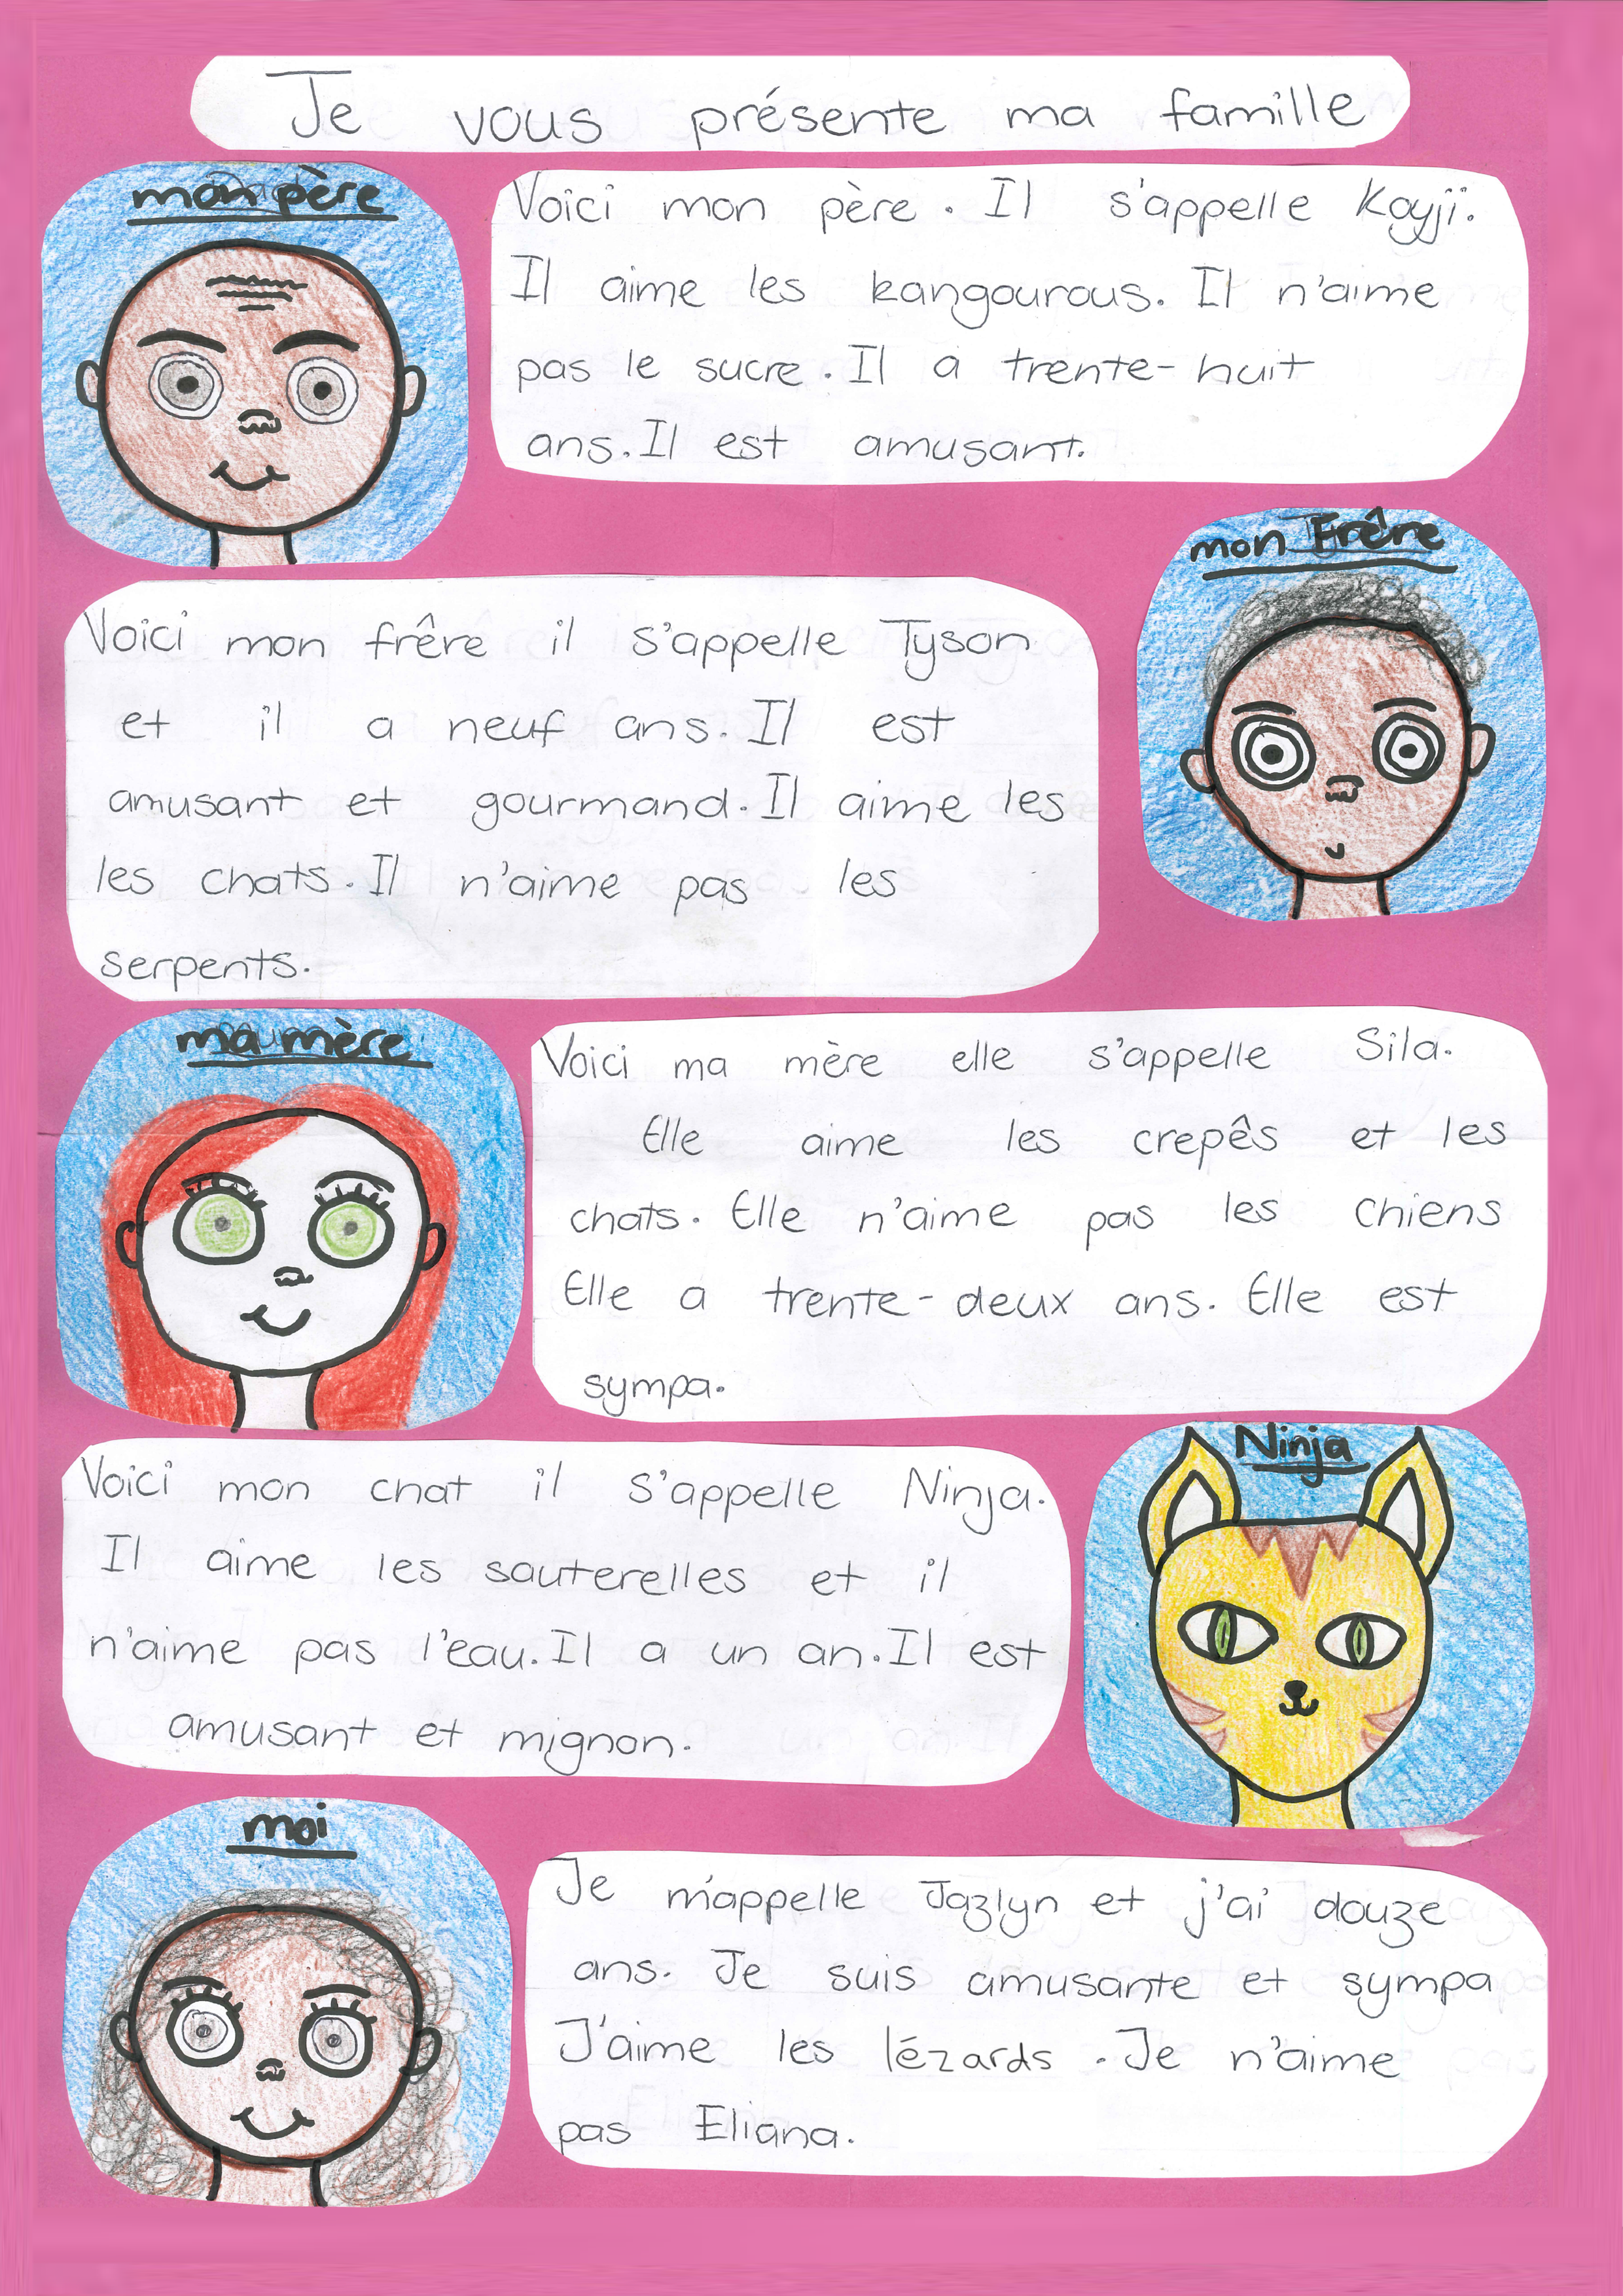 Je vous présente ma famille
mon père
Voici mon père. Il s'appelle Kayji.
Il aime les kangourous. Il n'aime
pas le sucre. Il a trente-huit
ans. Il est amusant.
mon Frêre
Voici mon frêre il s'appelle Tyson
et il a neuf ans. Il est
amusant et gourmand. Il aime les
les chats. Il n'aime pas les
serpents.
ma mère
Voici ma mère elle s'appelle Sila.
Elle aime les crepês et les
chats. Elle n'aime pas les chiens
Elle a trente-deux ans. Elle est
sympa.
Ninja
Voici mon chat il s'appelle Ninja.
Il aime les sauterelles et il
n'aime pas l'eau. Il a un an. Il est
amusant et mignon.
moi
Je m'appelle Jazlyn et j'ai douze
ans. Je suis amusante et sympa
J'aime les lézards. Je n'aime
pas Eliana.